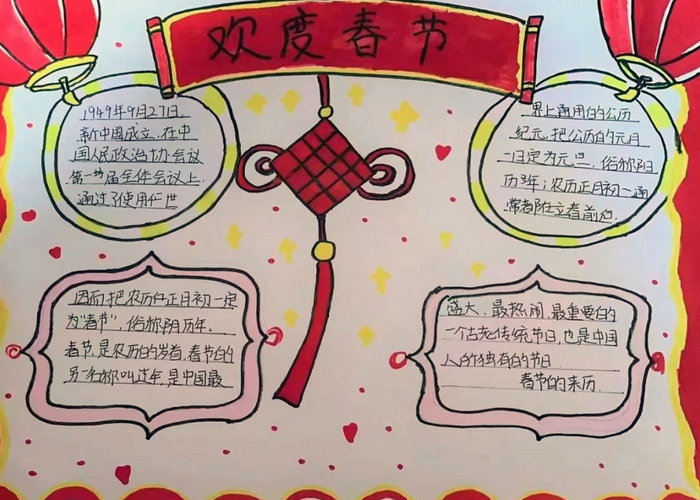 欢度春节
1949年9月27日,
新中国成立,在中
国人民政治协会议
第一届全体会议上,
通过了使用"世
界上通用的公历
纪元,把公历的元月
一日定为元旦,俗称阳
历年;农历正月初一通
常都在立春前后,
因而把农历正月初一定
为"春节",俗称阴历年.
春节,是农历的岁首,春节的
另一名称叫过年,是中国最
盛大、最热闹、最重要的
一个古老传统节日,也是中国
人的独有的节日.
春节的来历.